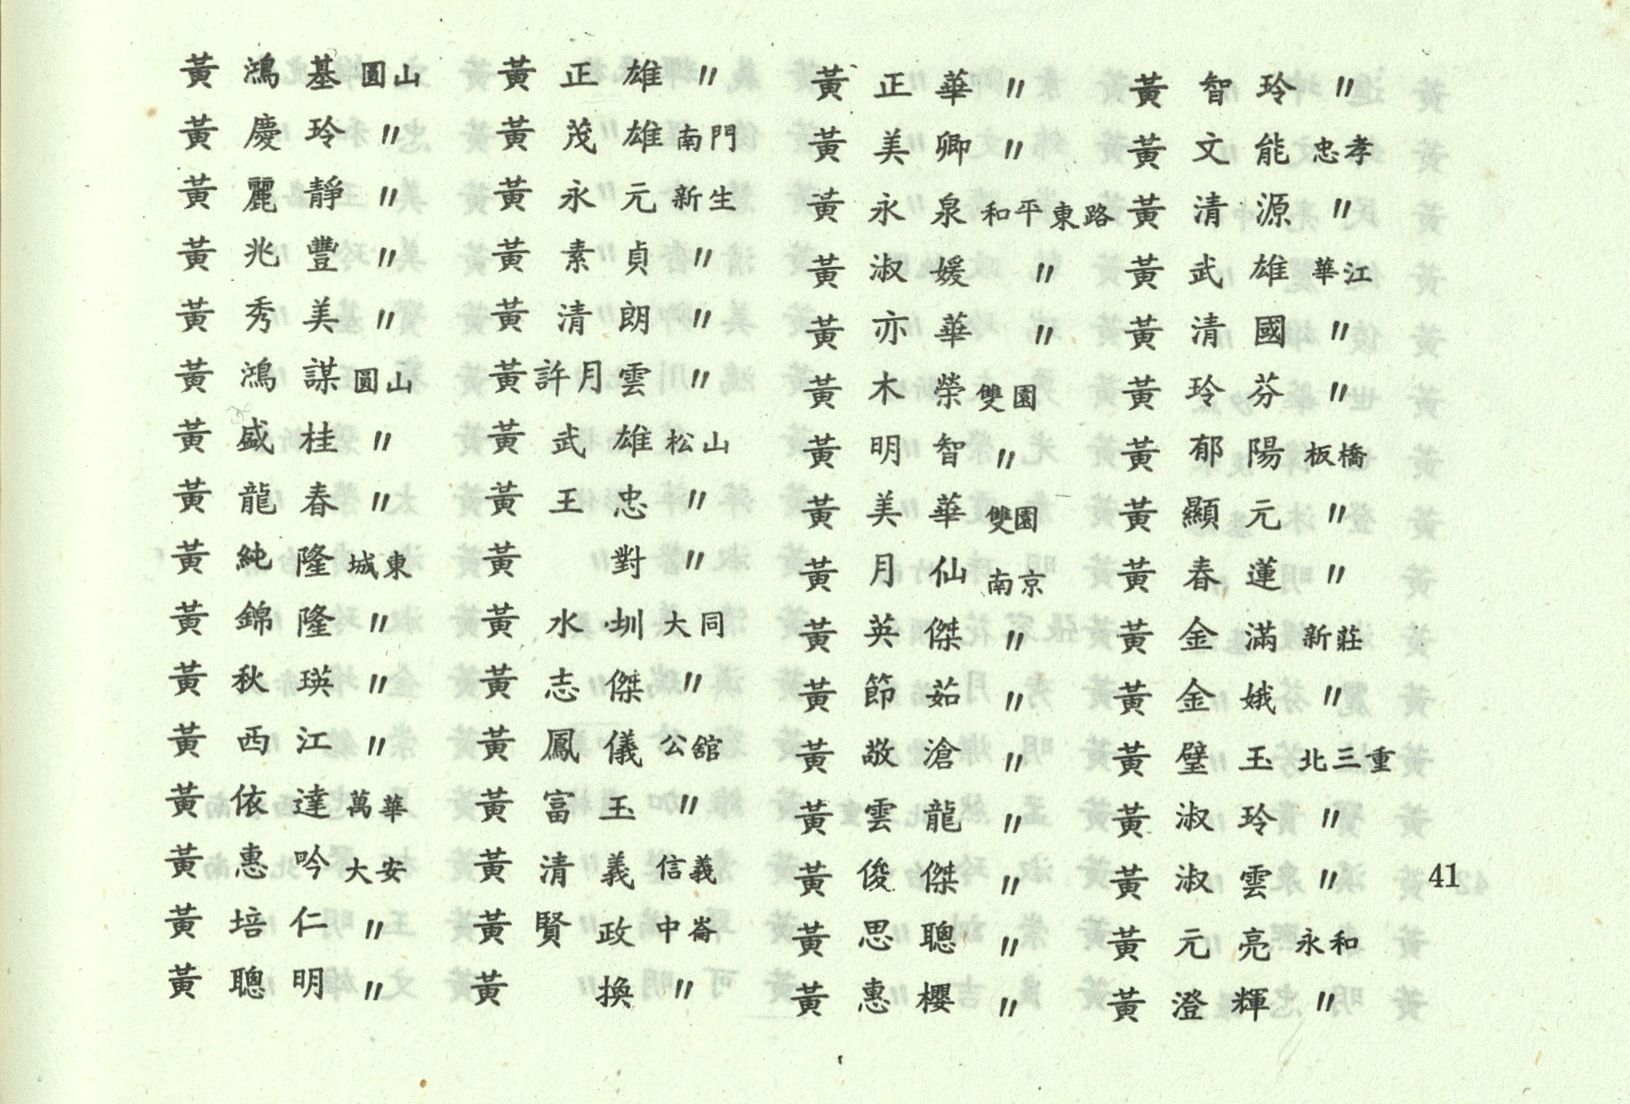 黃鴻基 圓山
黃慶玲 〃
黃麗靜 〃
黃兆豐 〃
黃秀美 〃
黃鴻謀 圓山
黃盛桂 〃
黃龍春 〃
黃純隆 城東
黃錦隆 〃
黃秋瑛 〃
黃西江 〃
黃依達 萬華
黃惠吟 大安
黃培仁 〃
黃聰明 〃
黃正雄 〃
黃茂雄 南門
黃永元 新生
黃素貞 〃
黃清朗 〃
黃許月雲 〃
黃武雄 松山
黃王忠 〃
黃對 〃
黃水圳 大同
黃志傑 〃
黃鳳儀 公舘
黃富玉 〃
黃清義 信義
黃賢政 中崙
黃換 〃
黃正華 〃
黃美卿 〃
黃永泉 和平東路
黃淑媛 〃
黃亦華 〃
黃木榮 雙園
黃明智 〃
黃美華 雙園
黃月仙 南京
黃英傑 〃
黃節茹 〃
黃敬滄 〃
黃雲龍 〃
黃俊傑 〃
黃思聰 〃
黃惠櫻 〃
黃智玲 〃
黃文能 忠孝
黃清源 〃
黃武雄 華江
黃清國 〃
黃玲芬 〃
黃郁陽 板橋
黃顯元 〃
黃春蓮 〃
黃金滿 新莊
黃金娥 〃
黃璧玉 北三重
黃淑玲 〃
黃淑雲 〃
黃元亮 永和
黃澄輝 〃
41